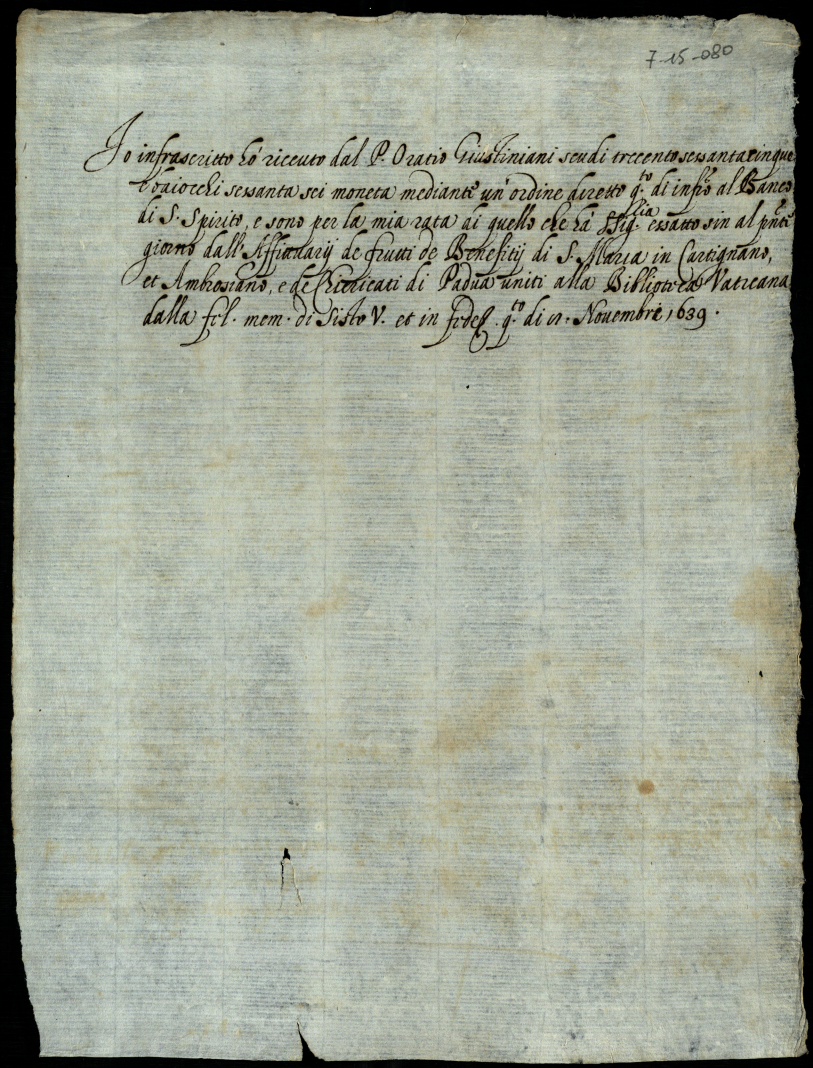 7-15-080
Io infrascritto hò riceuto dal P. Oratio Giustiniani scudi trecentosessantacinque
e baiocchi sessanta sei moneta mediante un'ordine diretto q.to di infr̃o al Banco
di S. Spirito, e sono per la mia rata di quello che hà essatto sin al pñte
giorno dall'Affittuarij de frutti de Benefitij di S. Maria in Cartignano,
et Ambrosiano, e de Chiericati di Padua uniti alla Biblioteca Vaticana
dalla fel. mem. di Sisto V. et in fede q.to di Novembre 1639.